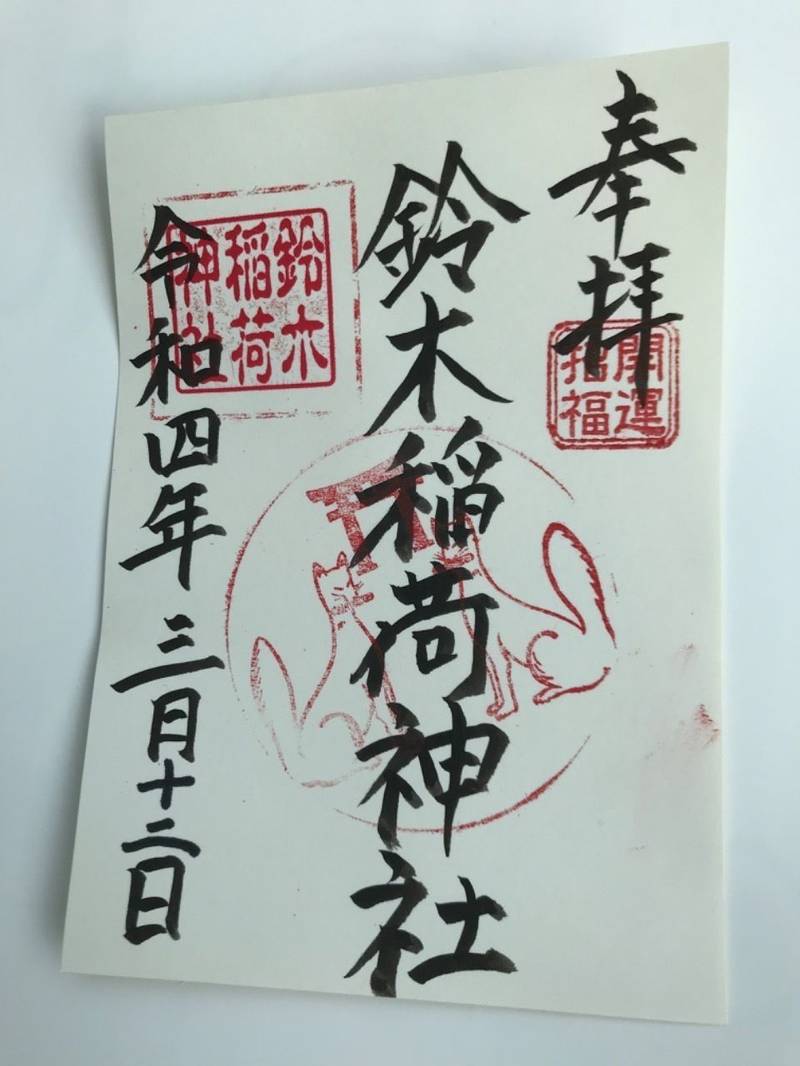 奉拝
開運
招福
鈴木稲荷神社
鈴木
稲荷
神社
令和四年三月十二日